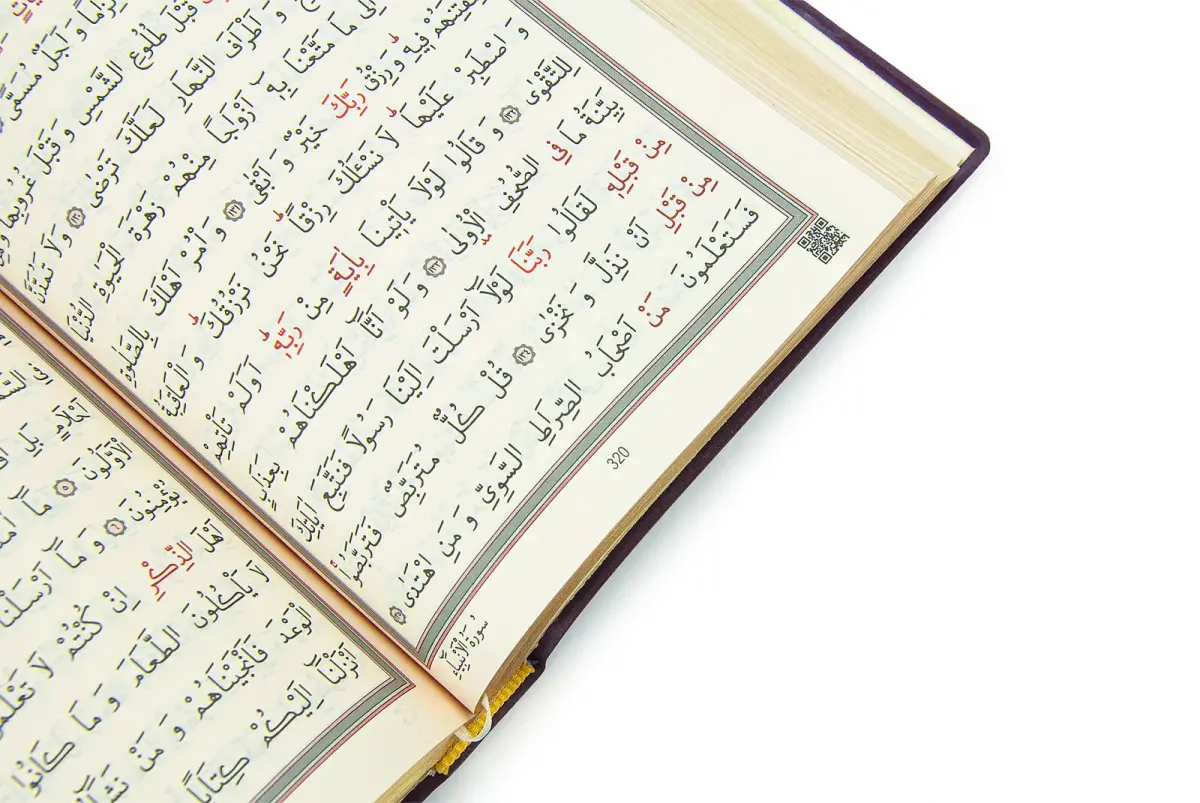 لِزَامًا وَ اَجَلٌ مُسَمًّى
قَبْلَ طُلُوعِ الشَّمْسِ وَ قَبْلَ غُرُوبِهَا
وَ اَطْرَافَ النَّهَارِ لَعَلَّكَ تَرْضٰى ﴿١٣٠﴾ وَلَا تَمُدَّنَّ
اِلٰى مَا مَتَّعْنَا بِهٖٓ اَزْوَاجًا مِنْهُمْ زَهْرَةَ الْحَيٰوةِ الدُّنْيَا
لِنَفْتِنَهُمْ فٖيهِ وَ رِزْقُ رَبِّكَ خَيْرٌ وَ اَبْقٰى ﴿١٣١﴾ وَ اْمُرْ اَهْلَكَ بِالصَّلٰوةِ
وَ اصْطَبِرْ عَلَيْهَا لَا نَسْـَٔلُكَ رِزْقًا نَحْنُ نَرْزُقُكَ وَ الْعَاقِبَةُ
لِلتَّقْوٰى ﴿١٣٢﴾ وَ قَالُوا لَوْلَا يَاْتٖينَا بِاٰيَةٍ مِنْ رَبِّهٖ اَوَلَمْ تَاْتِهِمْ
بَيِّنَةُ مَا فِى الصُّحُفِ الْاُولٰى ﴿١٣٣﴾ وَ لَوْ اَنَّٓا اَهْلَكْنَاهُمْ بِعَذَابٍ
مِنْ قَبْلِهٖ لَقَالُوا رَبَّنَا لَوْلَٓا اَرْسَلْتَ اِلَيْنَا رَسُولًا فَنَتَّبِعَ اٰيَاتِكَ
مِنْ قَبْلِ اَنْ نَذِلَّ وَ نَخْزٰى ﴿١٣٤﴾ قُلْ كُلٌّ مُتَرَبِّصٌ فَتَرَبَّصُوا
فَسَتَعْلَمُونَ مَنْ اَصْحَابُ الصِّرَاطِ السَّوِىِّ وَ مَنِ اهْتَدٰى ﴿١٣٥﴾
سُورَةُ الْاَنْبِيَٓاءِ
320
فِى
اَحْلَامٍ بَلِ
الْاَوَّلُونَ ﴿٥﴾ مَٓا
يُؤْمِنُونَ ﴿٦﴾ وَ مَٓا اَرْسَلْنَا
اَهْلَ الذِّكْرِ اِنْ كُنْتُمْ لَا
لَا يَاْكُلُونَ الطَّعَامَ وَ مَا كَانُوا
الْوَعْدَ فَاَنْجَيْنَاهُمْ وَ مَنْ نَشَٓاءُ
اَنْزَلْنَٓا اِلَيْكُمْ كِتَابًا